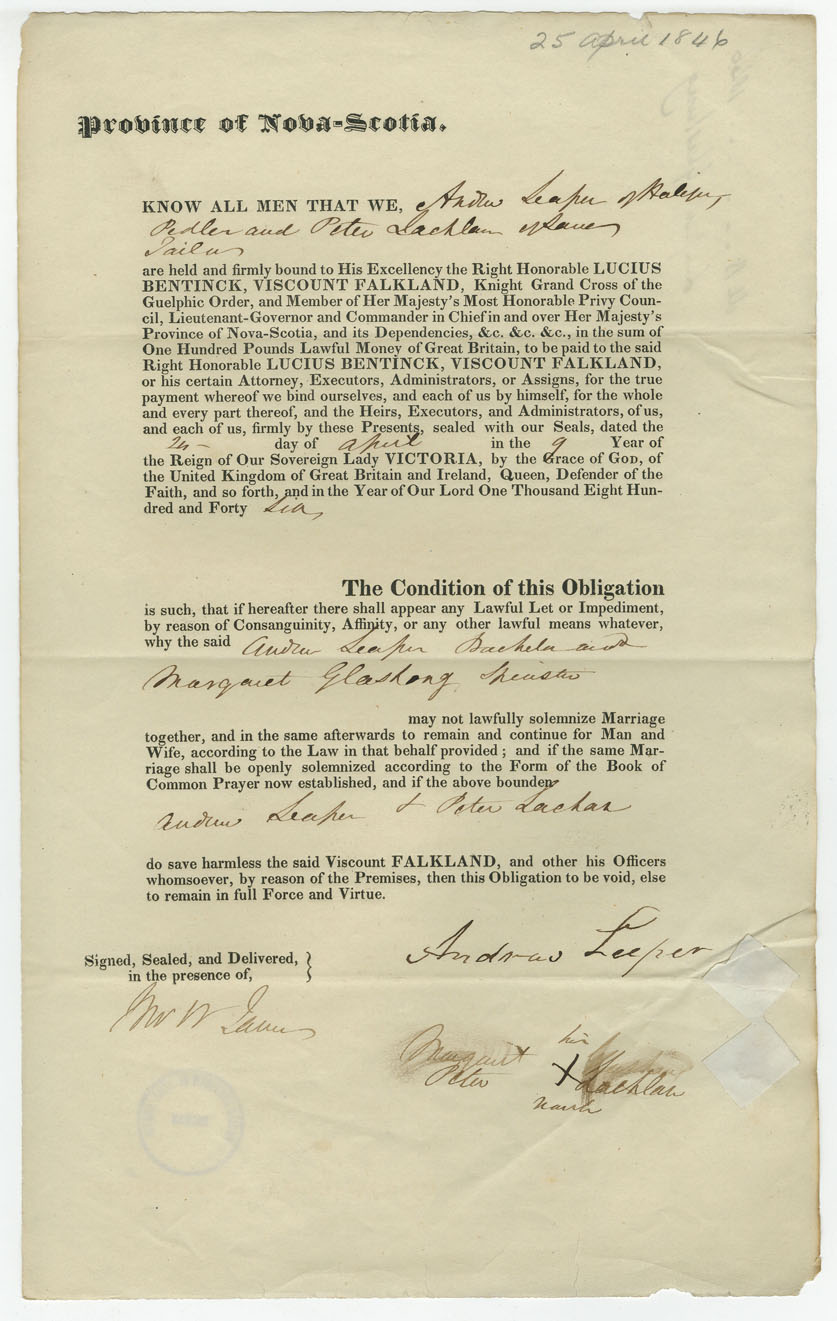 25 april 1846
Province of Nova-Scotia.
KNOW ALL MEN THAT WE, Andrew Leaper of Halifax
Pedler and Peter Lachlan of Same
Tailor
are held and firmly bound to His Excellency the Right Honorable LUCIUS
BENTINCK, VISCOUNT FALKLAND, Knight Grand Cross of the
Guelphic Order, and Member of Her Majesty's Most Honorable Privy Coun-
cil, Lieutenant-Governor and Commander in Chief in and over Her Majesty's
Province of Nova-Scotia, and its Dependencies, &c. &c. &c., in the sum of
One Hundred Pounds Lawful Money of Great Britain, to be paid to the said
Right Honorable LUCIUS BENTINCK, VISCOUNT FALKLAND,
or his certain Attorney, Executors, Administrators, or Assigns, for the true
payment whereof we bind ourselves, and each of us by himself, for the whole
and every part thereof, and the Heirs, Executors, and Administrators, of us,
and each of us, firmly by these Presents, sealed with our Seals, dated the
day of april in the 9 Year of
the Reign of Our Sovereign Lady VICTORIA, by the Grace of GOD, of
the United Kingdom of Great Britain and Ireland, Queen, Defender of the
Faith, and so forth, and in the Year of Our Lord One Thousand Eight Hun-
dred and Forty Six
The Condition of this Obligation
is such, that if hereafter there shall appear any Lawful Let or Impediment,
by reason of Consanguinity, Affinity, or any other lawful means whatever,
why the said Andrew Leaper Bachelor and
Margaret Glashong Spinster
may not lawfully solemnize Marriage
together, and in the same afterwards to remain and continue for Man and
Wife, according to the Law in that behalf provided; and if the same Mar-
riage shall be openly solemnized according to the Form of the Book of
Common Prayer now established, and if the above bounden
Andrew Leaper & Peter Lachan
do save harmless the said Viscount FALKLAND, and other his Officers
whomsoever, by reason of the Premises, then this Obligation to be void, else
to remain in full Force and Virtue.
Signed, Sealed, and Delivered,
in the presence of,
Andrew Leeper
Margaret his
Peter X Lachlan
mark